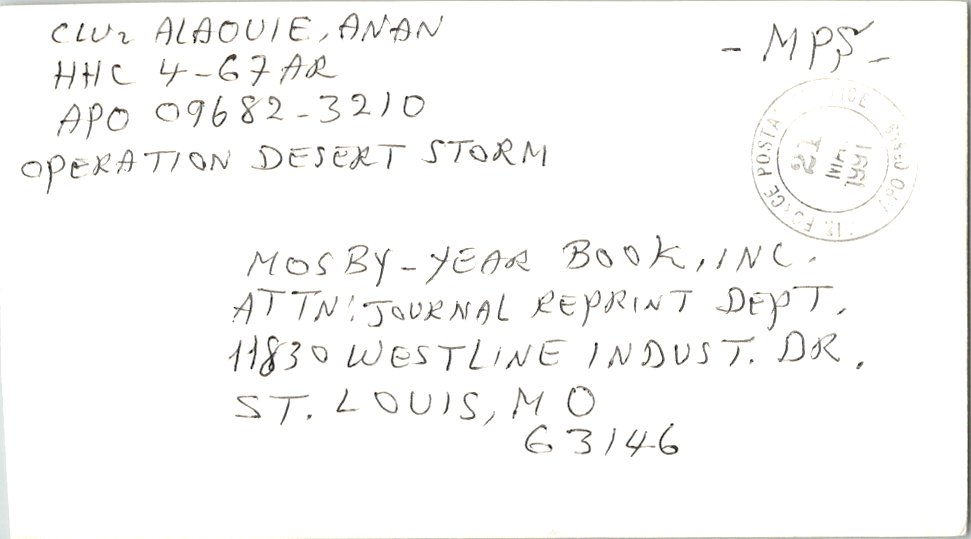 ALAOUIE, ANAN
HHC 4-67 AR
APO 09682-3210
OPERATION DESERT STORM
- MPS -
AIR FORCE POSTAL
21
MAR
1991
MOSBY-YEAR BOOK, INC.
ATTN: JOURNAL REPRINT DEPT.
11830 WESTLINE INDUST. DR.
ST. LOUIS, MO
63146